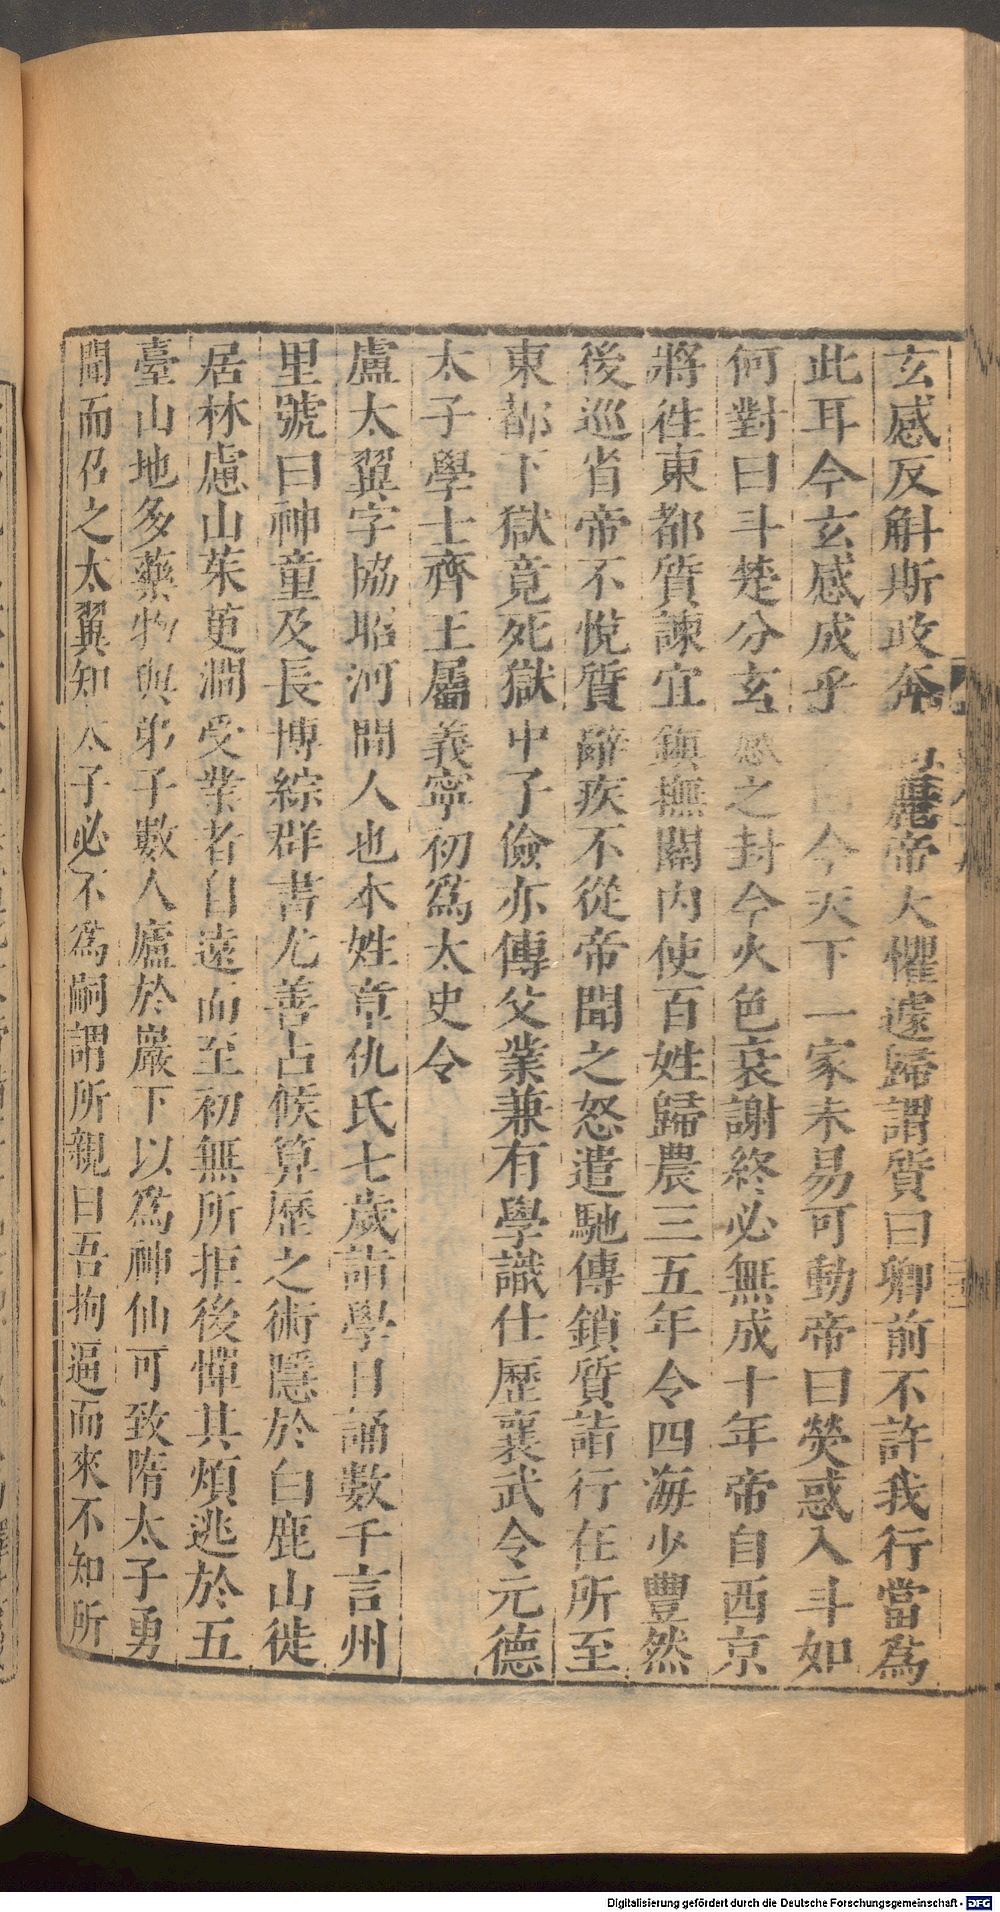 玄感反斛斯政奔高麗帝大懼遽歸謂質曰卿前不許我行當為
此耳今玄感成乎　曰今天下一家未易可動帝曰熒惑入斗如
何對曰斗楚分玄感之封今火色衰謝終必無成十年帝自西京
將徃東都質諫宜鎮撫關內使百姓歸農三五年令四海少豐然
後巡省帝不悅質辭疾不從帝聞之怒遣馳傳鎖質詣行在所至
東都下獄竟死獄中子儉亦傳父業兼有學識仕歷襄武令元德
太子學士齊王屬義寧初為太史令
盧太翼字協昭河間人也本姓章仇氏七歲詣學日誦數千言州
里號曰神童及長博綜群書尤善占候算歷之術隱於白鹿山徙
居林慮山茱萸澗受業者自遠而至初無所拒後憚其煩逃於五
臺山地多藥物與弟子數人廬於巖下以為神仙可致隋太子勇
聞而召之太翼知太子必不為嗣謂所親曰吾拘逼而來不知所
Digitalisierung gefördert durch die Deutsche Forschungsgemeinschaft - DFG